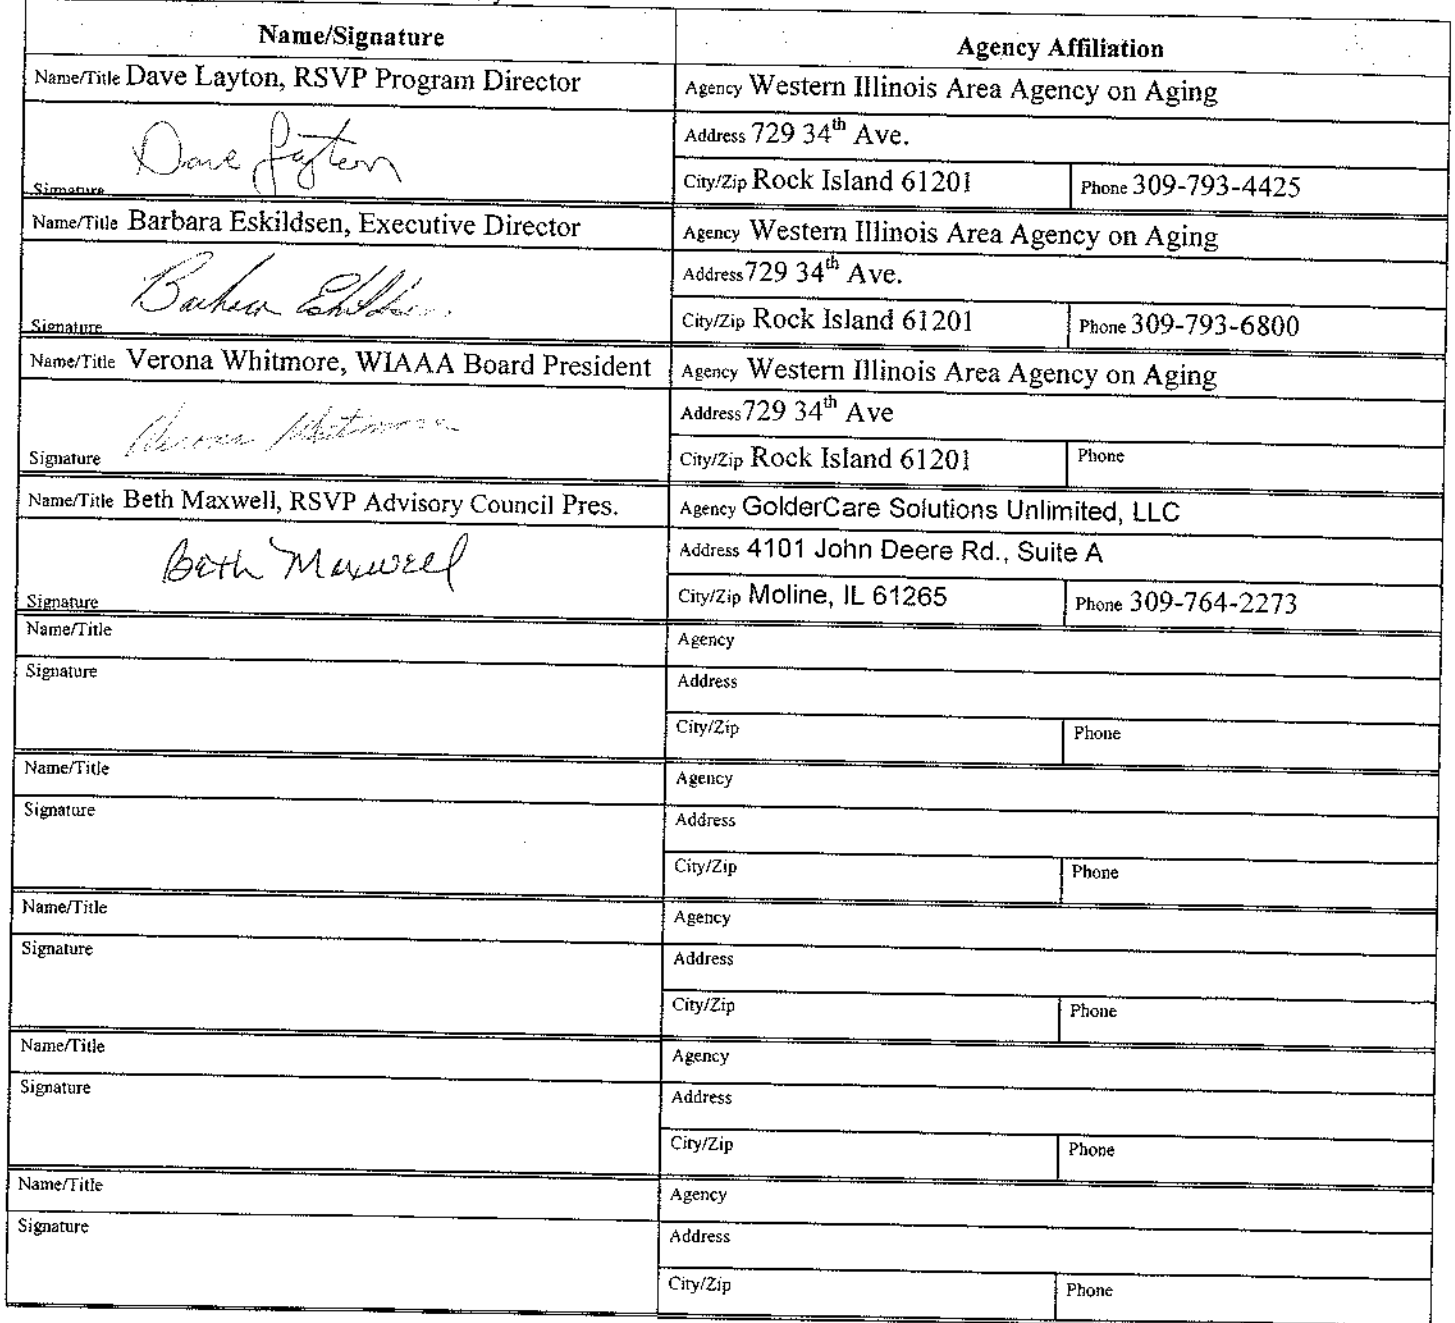 Name/Signature Agency Affiliation
Name/Title Dave Layton, RSVP Program Director
Agency Western Illinois Area Agency on Aging
Dave Layton
Signature
Address 729 34th Ave.
City/Zip Rock Island 61201 Phone 309-793-4425
Name/Title Barbara Eskildsen, Executive Director
Agency Western Illinois Area Agency on Aging
Barbara Eskildsen
Signature
Address 729 34th Ave.
City/Zip Rock Island 61201 Phone 309-793-6800
Name/Title Verona Whitmore, WIAAA Board President
Agency Western Illinois Area Agency on Aging
Verona Whitmore
Signature
Address 729 34th Ave
City/Zip Rock Island 61201 Phone
Name/Title Beth Maxwell, RSVP Advisory Council Pres.
Agency GolderCare Solutions Unlimited, LLC
Beth Maxwell
Signature
Address 4101 John Deere Rd., Suite A
City/Zip Moline, IL 61265 Phone 309-764-2273
Name/Title
Agency
Signature
Address
City/Zip Phone
Name/Title
Agency
Signature
Address
City/Zip Phone
Name/Title
Agency
Signature
Address
City/Zip Phone
Name/Title
Agency
Signature
Address
City/Zip Phone
Name/Title
Agency
Signature
Address
City/Zip Phone